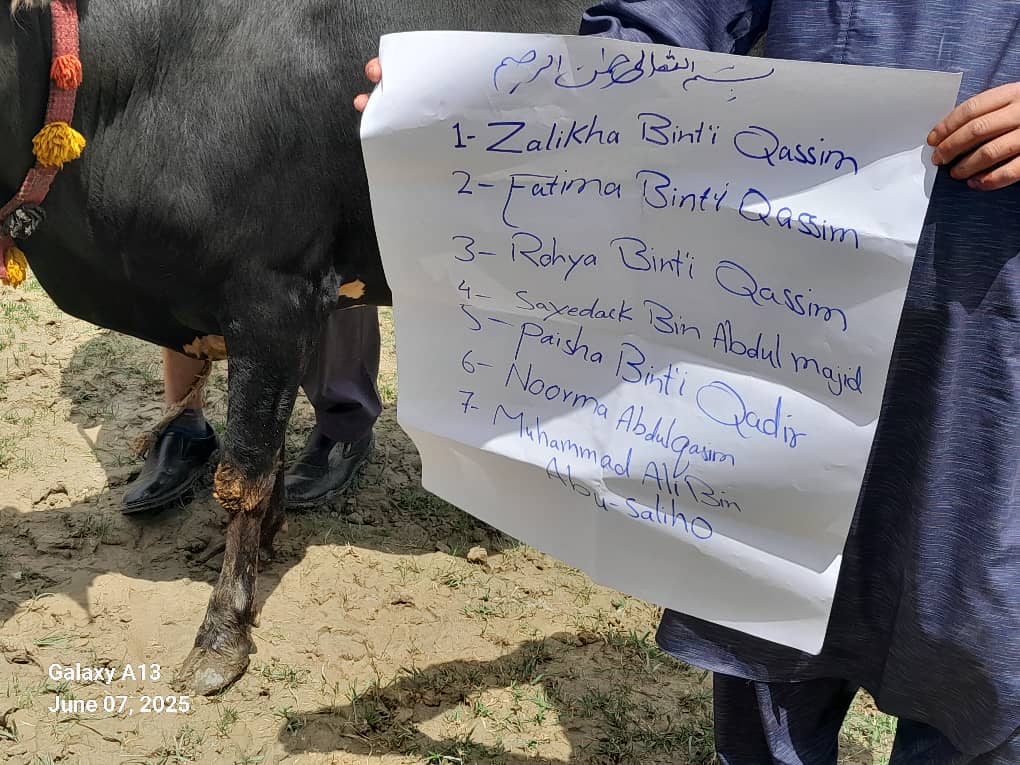 بسم الله الرحمن الرحیم
1- Zalikha Bint'i Qassim
2- Fatima Bint'i Qassim
3- Rohya Bint'i Qassim
4- Sayedack Bin Abdul majid
5- Paisha Bint'i Qadir
6- Noorma Abdulqasim
7- Muhammad Ali Bin
Abu-Saliho
Galaxy A13
June 07, 2025